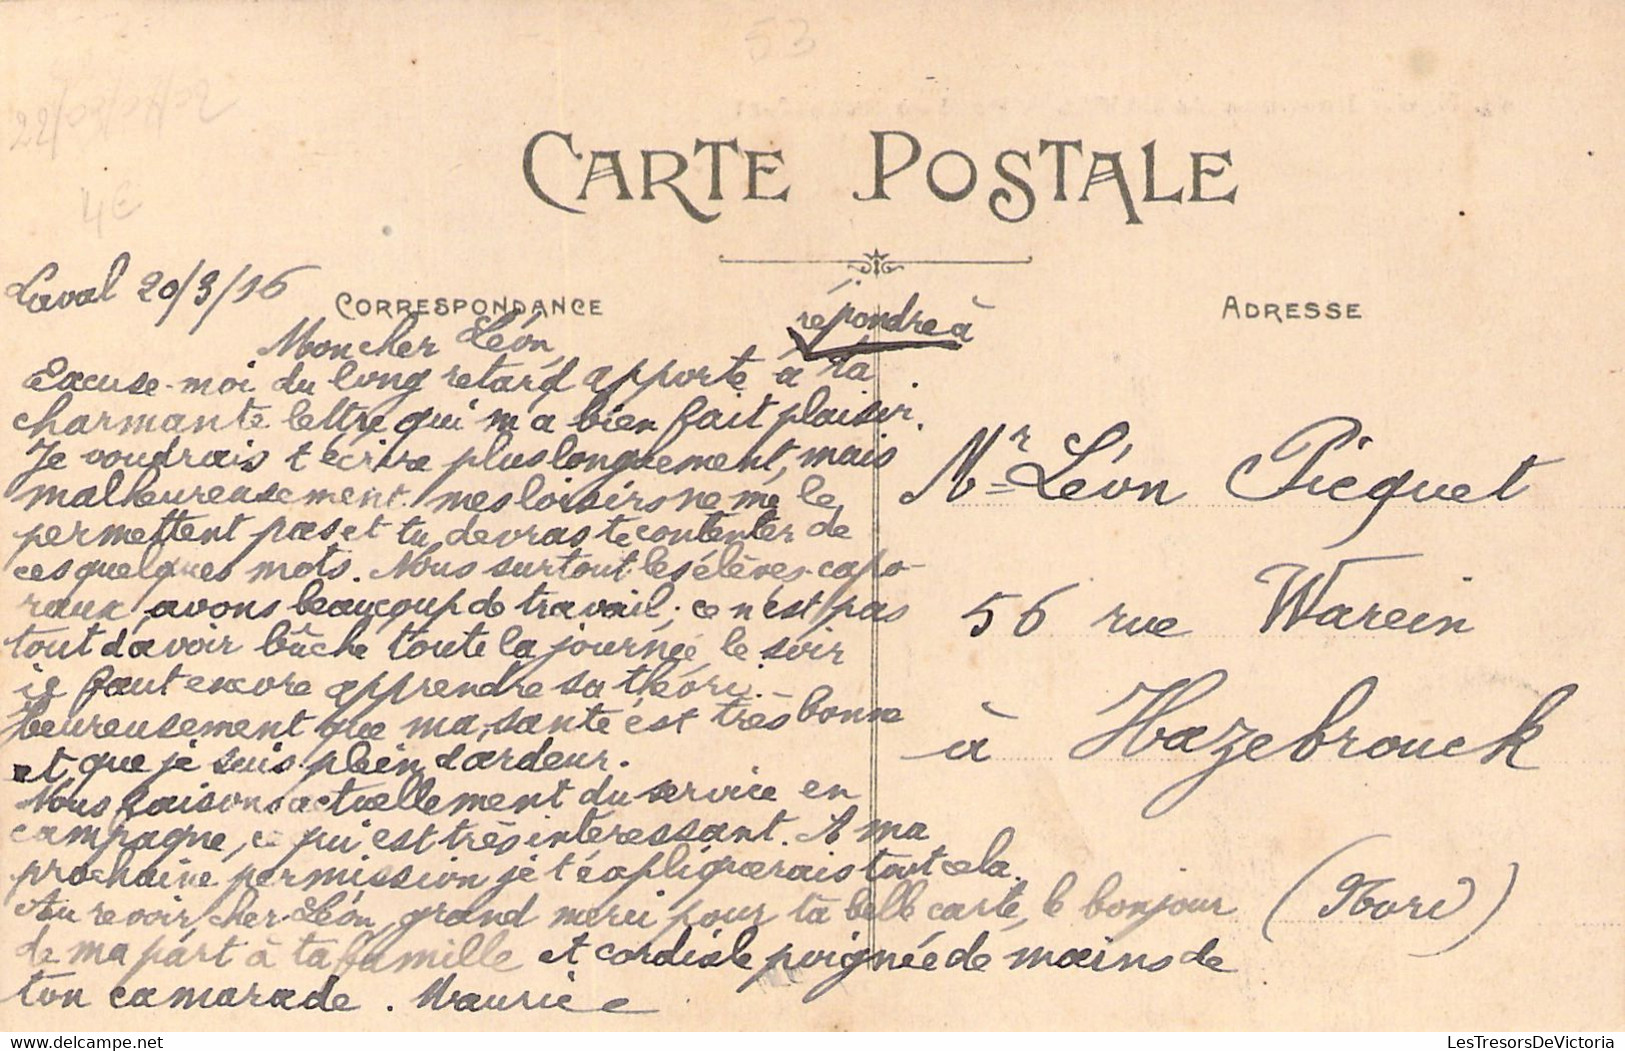 53
22/03/07/02
4€
CARTE POSTALE
Laval 20/3/16
CORRESPONDANCE
répondre à
ADRESSE
Mon cher Léon,
Excuse-moi du long retard apporté à ta
charmante lettre qui m'a bien fait plaisir.
Je voudrais t'écrire plus longuement, mais
malheureusement mes loisirs ne me le
permettent pas et tu devras te contenter de
ces quelques mots. Nous surtout les élèves-capo-
raux, avons beaucoup de travail; ce n'est pas
tout d'avoir bûché toute la journée le soir
il faut encore apprendre sa théorie.
heureusement que ma santé est très bonne
et que je suis plein d'ardeur.
Nous faisons actuellement du service en
campagne, ce qui est très intéressant. A ma
prochaine permission je t'expliquerais tout cela.
Au revoir, cher Léon, grand merci pour ta belle carte, le bonjour
de ma part à ta famille et cordiale poignée de mains de
ton camarade. Maurice
Mr Léon Picquet
56 rue Warein
à Hazebrouck
(Nord)
LesTresorsDeVictoria